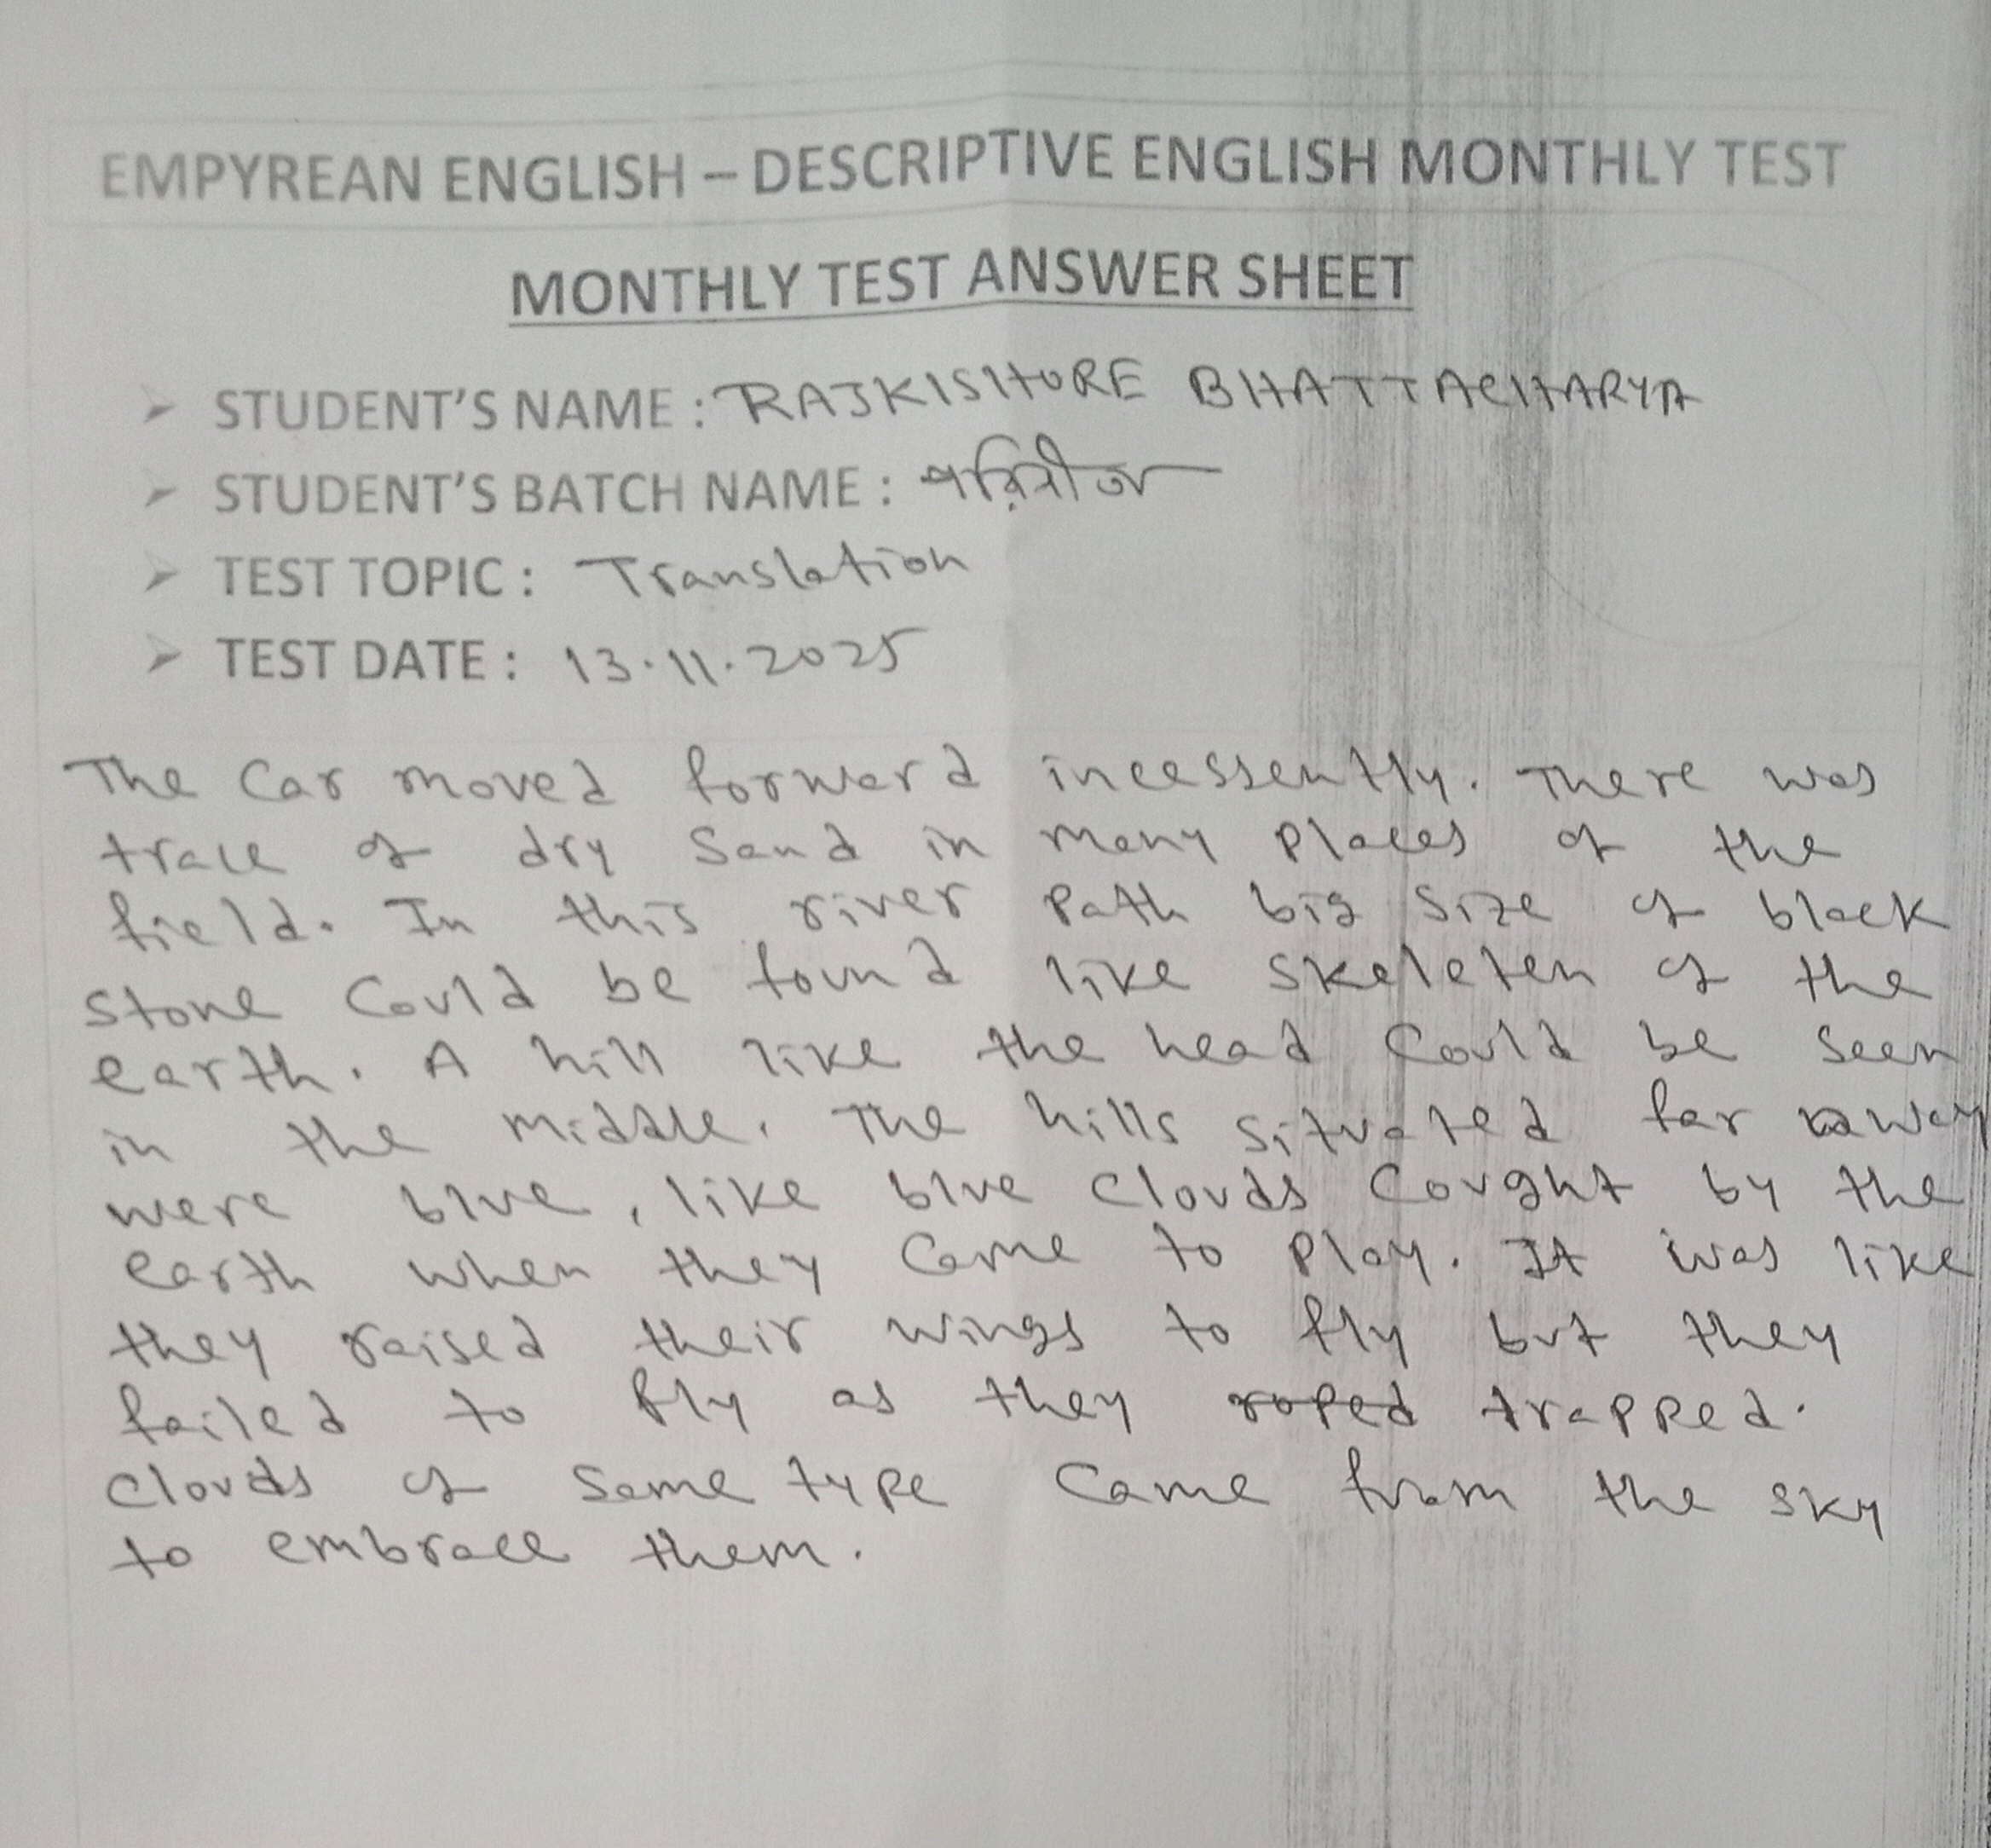 EMPYREAN ENGLISH – DESCRIPTIVE ENGLISH MONTHLY TEST
MONTHLY TEST ANSWER SHEET
➢ STUDENT'S NAME : RAJKISHORE BHATTACHARYA
➢ STUDENT'S BATCH NAME :
➢ TEST TOPIC : Translation
➢ TEST DATE : 13.11.2025
The Car moved forward incessently. There was
trace of dry Sand in many places of the
field. In this river path big size of black
stone Could be found like skeleten of the
earth. A hill like the head Could be seen
in the middle. The hills situated far away
were blue, like blue clouds Caught by the
earth when they Came to play. It was like
they raised their wings to fly but they
failed to fly as they roped trapped.
Clouds of Same type Came from the sky
to embrace them.